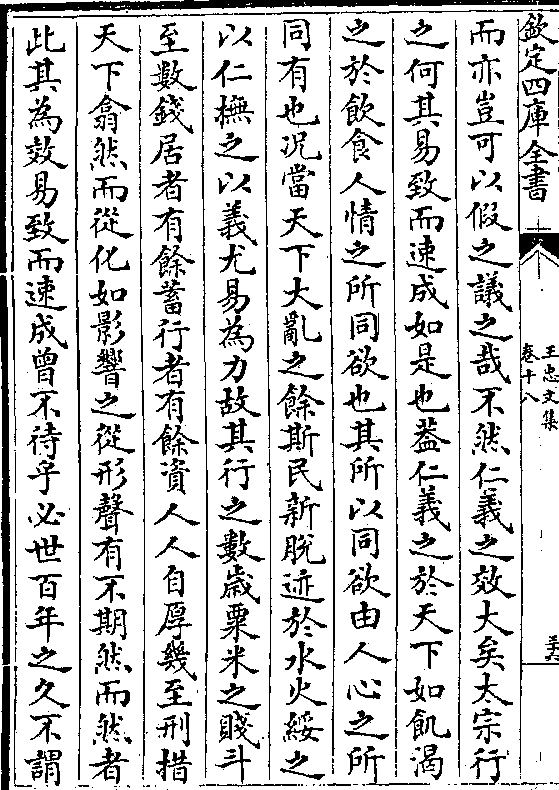 欽定四庫全書
王忠文集
卷十八
三十六
而亦豈可以假之議之哉不然仁義之效大矣太宗行
之何其易致而速成如是也葢仁義之於天下如飢渴
之於飲食人情之所同欲也其所以同欲由人心之所
同有也况當天下大亂之餘斯民新脫迹於水火綏之
以仁撫之以義尤易為力故其行之數歲粟米之賤斗
至數錢居者有餘蓄行者有餘資人人自厚幾至刑措
天下翕然而從化如影響之從形聲有不期然而然者
此其為效易致而速成曾不待乎必世百年之久不謂